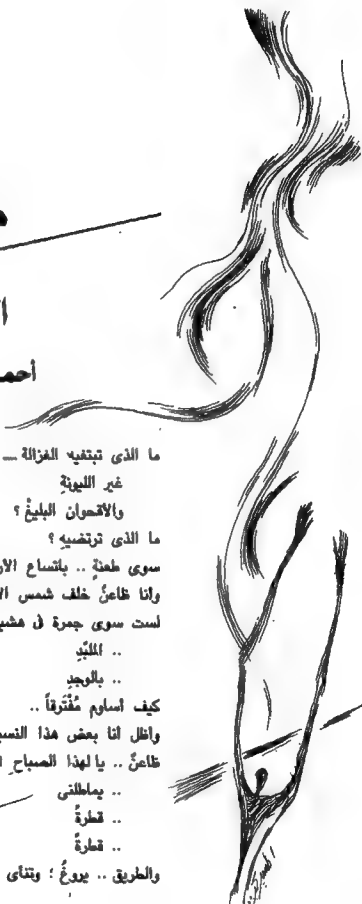 أحمد
ما الذى تبتغيه الغزالة ــ
غير الليونةِ
والأقحوان البليغْ ؟
ما الذى ترتضيهِ ؟
سوى طعنةٍ .. باتساع
وأنا ظاعنٌ خلف شمس
لست سوى جمرة فى
.. الملبَّدِ
.. بالوجدِ
كيف أساوم مُفْتَرقاً ..
وأظل أنا بعض هذا
ظاعنٌ .. يا لهذا الصباحِ
.. يماطلنى
.. قطرةً
.. قطرةً
والطريق .. يروغُ ؛ وتنأى